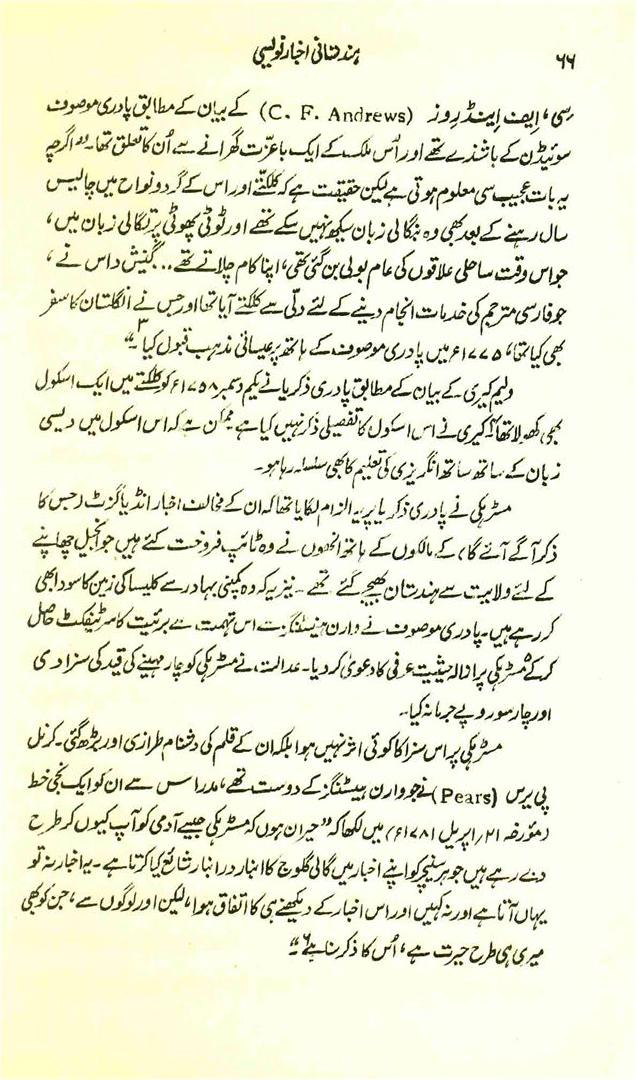 ۶۶
ہندستانی اخبار نویسی
سی، اِیف اِینڈ رِوز (C. F. Andrews) کے بیان کے مطابق پادری موصوف
سوئیڈن کے باشندے تھے اور اُس ملک کے ایک باعزّت گھرانے سے اُن کا تعلق تھا۔ "اگرچہ
یہ بات عجیب سی معلوم ہوتی ہے لیکن حقیقت ہے کہ کلکتّے اور اس کے گرد و نواح میں چالیس
سال رہنے کے بعد بھی وہ بنگالی زبان سیکھ نہیں سکے تھے اور ٹوٹی پھوٹی پرتگالی زبان میں،
جو اس وقت ساحلی علاقوں کی عام بولی بن گئی تھی، اپنا کام چلاتے تھے... گنیش داس نے،
جو فارسی مترجم کی خدمات انجام دینے کے لئے دلّی سے کلکتے آیا تھا اور جس نے انگلستان کا سفر
بھی کیا تھا، ۱۷۷۵ء میں پادری موصوف کے ہاتھ پر عیسائی مذہب قبول کیا۳۔"
ولیم کیری کے بیان کے مطابق پادری ذکریا نے یکم دسمبر ۱۷۵۸ء کو کلکتے میں ایک اسکول
بھی کھولا تھا۴ کیری نے اس اسکول کا تفصیلی ذکر نہیں کیا ہے ممکن ہے کہ اس اسکول میں دیسی
زبان کے ساتھ ساتھ انگریزی کی تعلیم کا بھی سلسلہ رہا ہو۔
مسٹر ہکی نے پادری ذکریا پر یہ الزام لگایا تھا کہ ان کے مخالف اخبار انڈیا گزٹ (جس کا
ذکر آگے آئے گا) کے مالکوں کے ہاتھ انھوں نے وہ ٹائپ فروخت کئے ہیں جو انجیل چھاپنے
کے لئے ولایت سے ہندستان بھیجے گئے تھے۔ نیز یہ کہ وہ کمپنی بہادر سے کلیسا کی زمین کا سودا بھی
کر رہے ہیں۔ پادری موصوف نے وارن ہیسٹنگز سے اس تہمت سے برئیت کا سرٹیفکٹ حاصل
کرکے۵ مسٹر ہکی پر ازالہ حیثیت عرفی کا دعویٰ کر دیا۔ عدالت نے مسٹر ہکی کو چار مہینے کی قید کی سزا دی
اور چار سو روپے جرمانہ کیا۔
مسٹر ہکی پر اس سزا کا کوئی اثر نہیں ہوا بلکہ ان کے قلم کی دشنام طرازی اور بڑھ گئی۔ کرنل
پی پرس (Pears) نے جو وارن ہیسٹنگز کے دوست تھے، مدراس سے ان کو ایک نجی خط
(مؤرخہ ۲۱/ اپریل ۱۷۸۱ء) میں لکھا کہ "حیران ہوں کہ مسٹر ہکی جیسے آدمی کو آپ کیوں کر طرح
دے رہے ہیں جو ہر سنیچر کو اپنے اخبار میں گالی گلوج کا انبار در انبار شائع کیا کرتا ہے۔ یہ اخبار نہ تو
یہاں آتا ہے اور نہ کہیں اور اس اخبار کے دیکھنے ہی کا اتفاق ہوا، لیکن اور لوگوں سے، جن کو بھی
میری ہی طرح حیرت ہے، اُس کا ذکر سنا ہے۶۔"